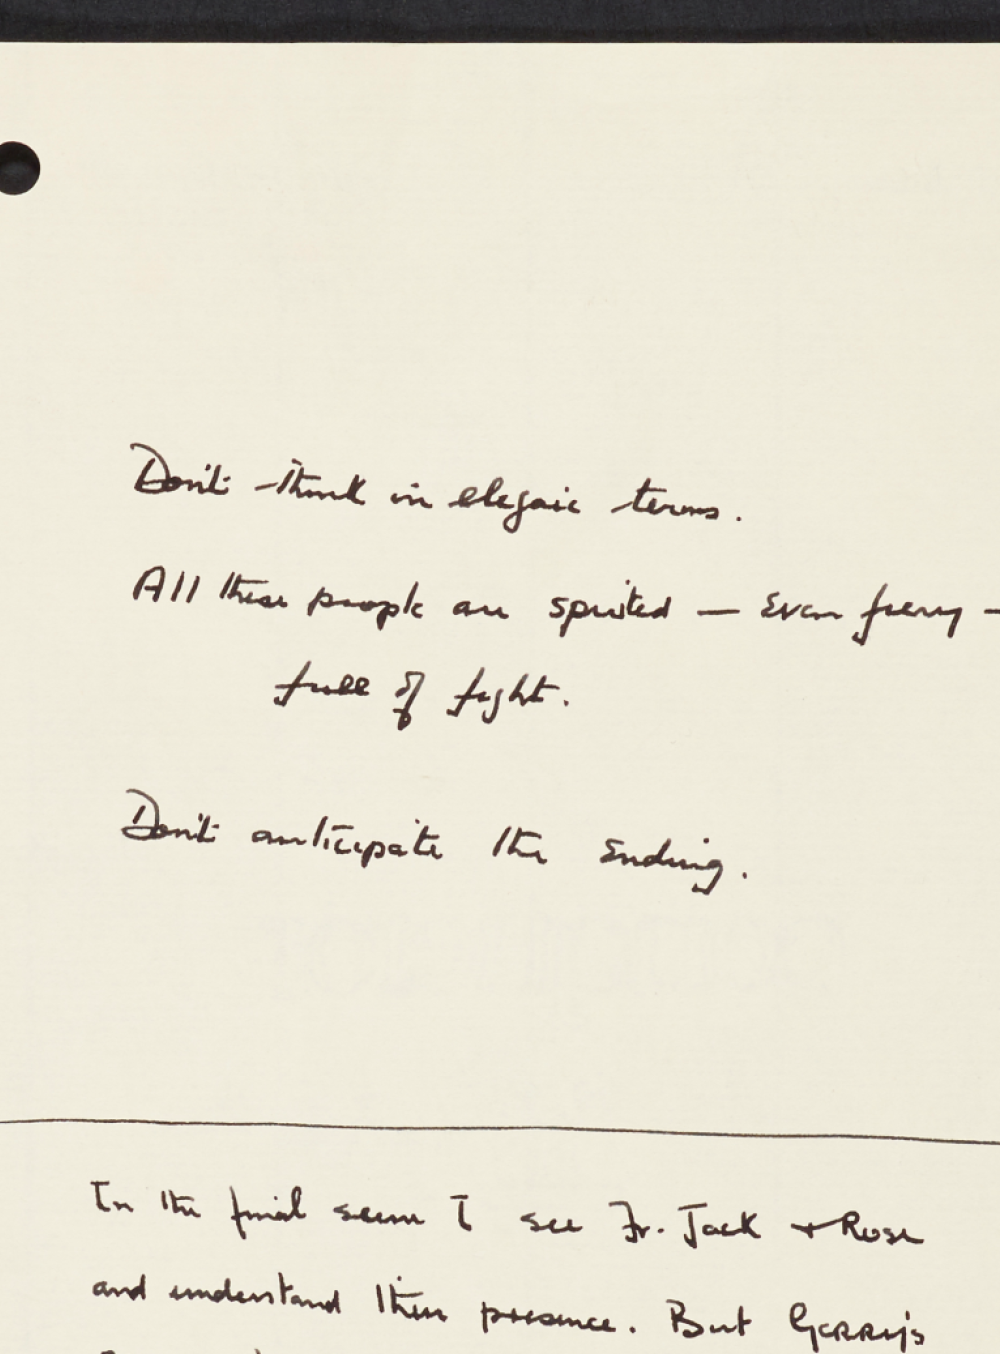 Don't think in elegaic terms.
All these people are spirited — even fiery —
full of fight.
Don't anticipate the ending.
In the final scene I see Fr. Jack + Rose
and understand their presence. But Gerry's